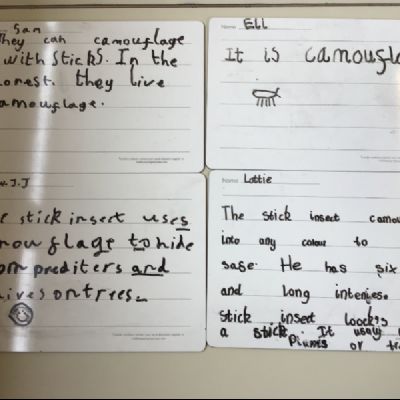 Sam
They can camouflage
with sticks. In the
orest. they live
amouflage.
Name Ell
It is camoufla
J.J
e stick insect uses
mouflage to hide
om prediters and
lives on trees.
Name Lottie
The stick insect camou
into any colour to
safe. He has six
and long intenies.
stick insect loocks
a stick. It usaly
or